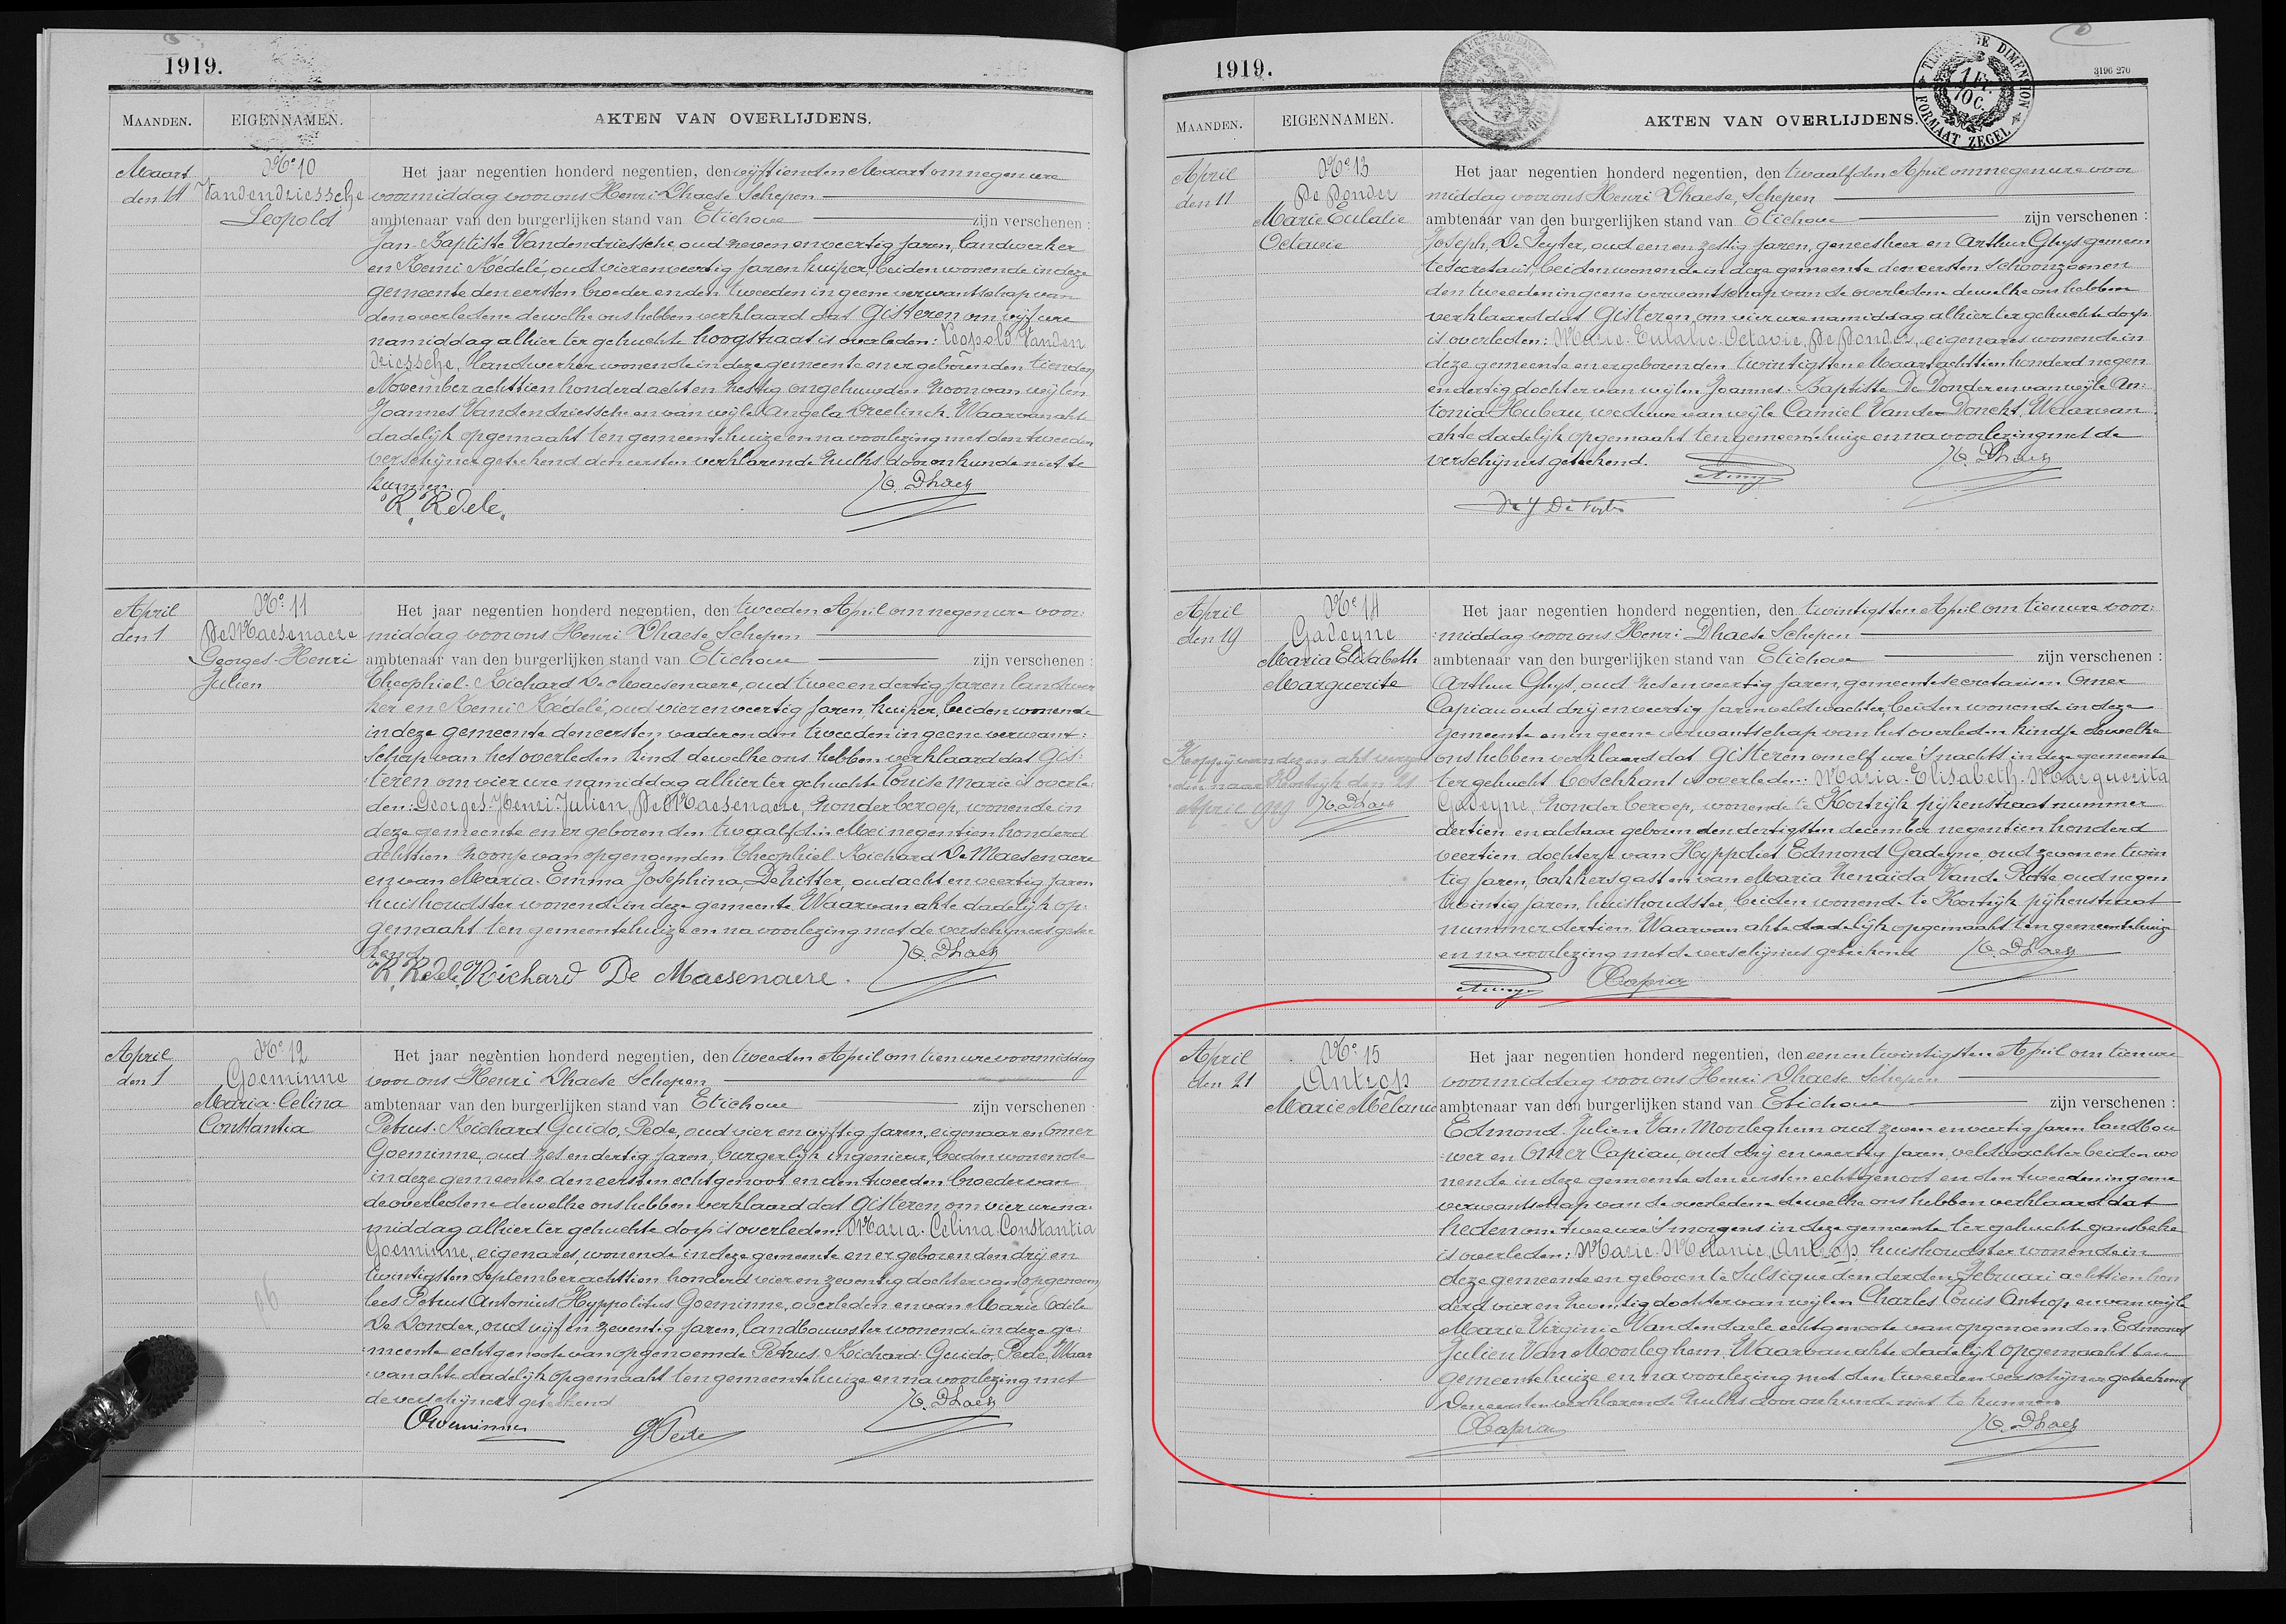 1919.
MAANDEN.
EIGENNAMEN.
AKTEN VAN OVERLIJDENS.
Maart
den 14
No 10
Vandendriessche
Leopold
Het jaar negentien honderd negentien, den vijftienden Maart om negen ure
voormiddag voor ons Henri Dhaese Schepen
ambtenaar van den burgerlijken stand van Etichove zijn verschenen :
Jan-Baptiste Vandendriessche, oud neven en veertig jaren, landwerker
en Remi Redelé, oud vier en veertig jaren kuiper, beiden wonende in deze
gemeente den eersten broeder en den tweeden in geene verwantschap van
den overledene dewelke ons hebben verklaard dat Gisteren om vijf ure
namiddag alhier ter gehuchte hoogstraat is overleden: Leopold Vanden
driessche, landwerker wonende in deze gemeente en er geboren den tienden
November achttien honderd acht en zestig ongehuwden zoon van wijlen
Joannes Vandendriessche en van wijle Angela Vreelinck. Waarvan akte
dadelijk opgemaakt ten gemeentehuize en na voorlezing met den tweeden
verschijner geteekend den eersten verklarende zulks door onkunde niet te
kunnen.
R. Redele, H. Dhaese
April
den 1
No 11
De Maesenaere
Georges-Henri
Julien
Het jaar negentien honderd negentien, den tweeden April om negen ure voor-
middag voor ons Henri Dhaese Schepen
ambtenaar van den burgerlijken stand van Etichove zijn verschenen :
Theophiel-Richard De Maesenaere, oud twee en dertig jaren landwer
ker en Remi Redelé, oud vier en veertig jaren, kuiper, beiden wonende
in deze gemeente den eersten vader en den tweeden in geene verwant-
schap van het overleden kind dewelke ons hebben verklaard dat Gis-
teren om vier ure namiddag alhier ter gehuchte Louise Marie is overle-
den: Georges-Henri-Julien, De Maesenaere, zonder beroep, wonende in
deze gemeente en er geboren den twaalfden Mei negentien honderd
achttien zoontje van opgenoemden Theophiel Richard De Maesenaere
en van Maria-Emma Josephina, De Ritter, oud acht en veertig jaren
huishoudster wonende in deze gemeente. Waarvan akte dadelijk op-
gemaakt ten gemeentehuize en na voorlezing met de verschijners getee
kend
R. Redele, Richard De Maesenaere. H. Dhaese
April
den 1
No 12
Goeminne
Maria-Celina
Constantia
Het jaar negentien honderd negentien, den tweeden April om tien ure voormiddag
voor ons Henri Dhaese Schepen
ambtenaar van den burgerlijken stand van Etichove zijn verschenen :
Petrus-Richard Guido, Pede, oud vier en vijftig jaren, eigenaar en Omer
Goeminne, oud zes en dertig jaren, burgerlijk ingenieur, beiden wonende
in deze gemeente den eersten echtgenoot en den tweeden broeder van
de overledene dewelke ons hebben verklaard dat Gisteren om vier ure na-
middag alhier ter gehuchte dorp is overleden: Maria-Celina-Constantia
Goeminne, eigenares, wonende in deze gemeente en er geboren den drij en
twintigsten September achttien honderd vier en zeventig dochter van
Petrus Antonius Hyppolitus Goeminne, overleden en van Marie Odile
De Donder, oud vijf en zeventig jaren, landbouwster wonende in deze ge-
meente echtgenoote van opgenoemde Petrus-Richard-Guido, Pede, Waar
van akte dadelijk opgemaakt ten gemeentehuize en na voorlezing met
de verschijners geteekend
OGoeminne G. Pede H. Dhaese
1919.
3196 270
1 Fr.
10 C.
FORMAAT ZEGEL
MAANDEN.
EIGENNAMEN.
AKTEN VAN OVERLIJDENS.
April
den 11
No 13
De Donder
Marie Eulalie
Octavie
Het jaar negentien honderd negentien, den twaalfden April om negen ure voor
middag voor ons Henri Dhaese, Schepen
ambtenaar van den burgerlijken stand van Etichove zijn verschenen :
Joseph, De Feyter, oud een en zestig jaren, geneesheer en Arthur Ghys gemeen
tesecretaris, beiden wonende in deze gemeente den eersten schoonzoon en
den tweeden in geene verwantschap van de overledene dewelke ons hebben
verklaard dat Gisteren, om vier ure namiddag alhier ter gehuchte dorp
is overleden: Marie-Eulalie-Octavie, De Donder, eigenares wonende in
deze gemeente en er geboren den twintigsten Maart achttien honderd negen
en dertig dochter van wijlen Joannes-Baptiste De Donder en van wijle An-
tonia Hubau, weduwe van wijle Camiel Vander Donckt, Waarvan
akte dadelijk opgemaakt ten gemeentehuize en na voorlezing met de
verschijners geteekend. H. Dhaese
April
den 19
No 14
Gadeyne
Maria Elisabeth
Marguerite
Het jaar negentien honderd negentien, den twintigsten April om tien ure voor-
middag voor ons Henri Dhaese Schepen
ambtenaar van den burgerlijken stand van Etichove zijn verschenen :
Arthur Ghys, oud zes en veertig jaren, gemeentesecretaris en Omer
Capiau oud drij en veertig jaren veldwachter, beiden wonende in deze
gemeente en in geene verwantschap van het overleden kindje dewelke
ons hebben verklaard dat Gisteren om elf ure 's nachts in deze gemeente
ter gehucht boschkant is overleden: Maria-Elisabeth-Marguerita
Gadeyne, zonder beroep, wonende te Kortrijk pijkenstraat nummer
dertien en aldaar geboren den dertigsten december negentien honderd
veertien dochterje van Hyppoliet Edmond Gadeyne, oud zeven en twin
tig jaren, bakkersgast en van Maria Zenaida Vande Putte oud negen
twintig jaren, huishoudster, beiden wonende te Kortrijk pijkenstraat
nummer dertien. Waarvan akte dadelijk opgemaakt ten gemeentehuize
en na voorlezing met de verschijners geteekend H. Dhaese
OCapiau
Koppij van dezen akt
den naar Kortrijk den 21
April 1919 H. Dhaese
April
den 21
No 15
Antrop
Marie Mélanie
Het jaar negentien honderd negentien, den een en twintigsten April om tien ure
voormiddag voor ons Henri Dhaese Schepen
ambtenaar van den burgerlijken stand van Etichove zijn verschenen :
Edmond-Julien Van Moorleghem oud zeven en veertig jaren landbou
wer en Omer Capiau, oud drij en veertig jaren, veldwachter beiden wo
nende in deze gemeente den eersten echtgenoot en den tweeden in geene
verwantschap van de overledene dewelke ons hebben verklaard dat
heden om twee ure 's morgens in deze gemeente ter gehuchte gansbeke
is overleden: Marie-Melanie, Antrop, huishoudster wonende in
deze gemeente en geboren te Sulsique den derden Februari achttien hon
derd vier en zeventig dochter van wijlen Charles Louis Antrop en van wijle
Marie Virginie Vandendaele echtgenoote van opgenoemden Edmond
Julien Van Moorleghem. Waarvan akte dadelijk opgemaakt ten
gemeentehuize en na voorlezing met den tweeden verschijner geteekend
Den eersten verklarende zulks door onkunde niet te kunnen
OCapiau H. Dhaese